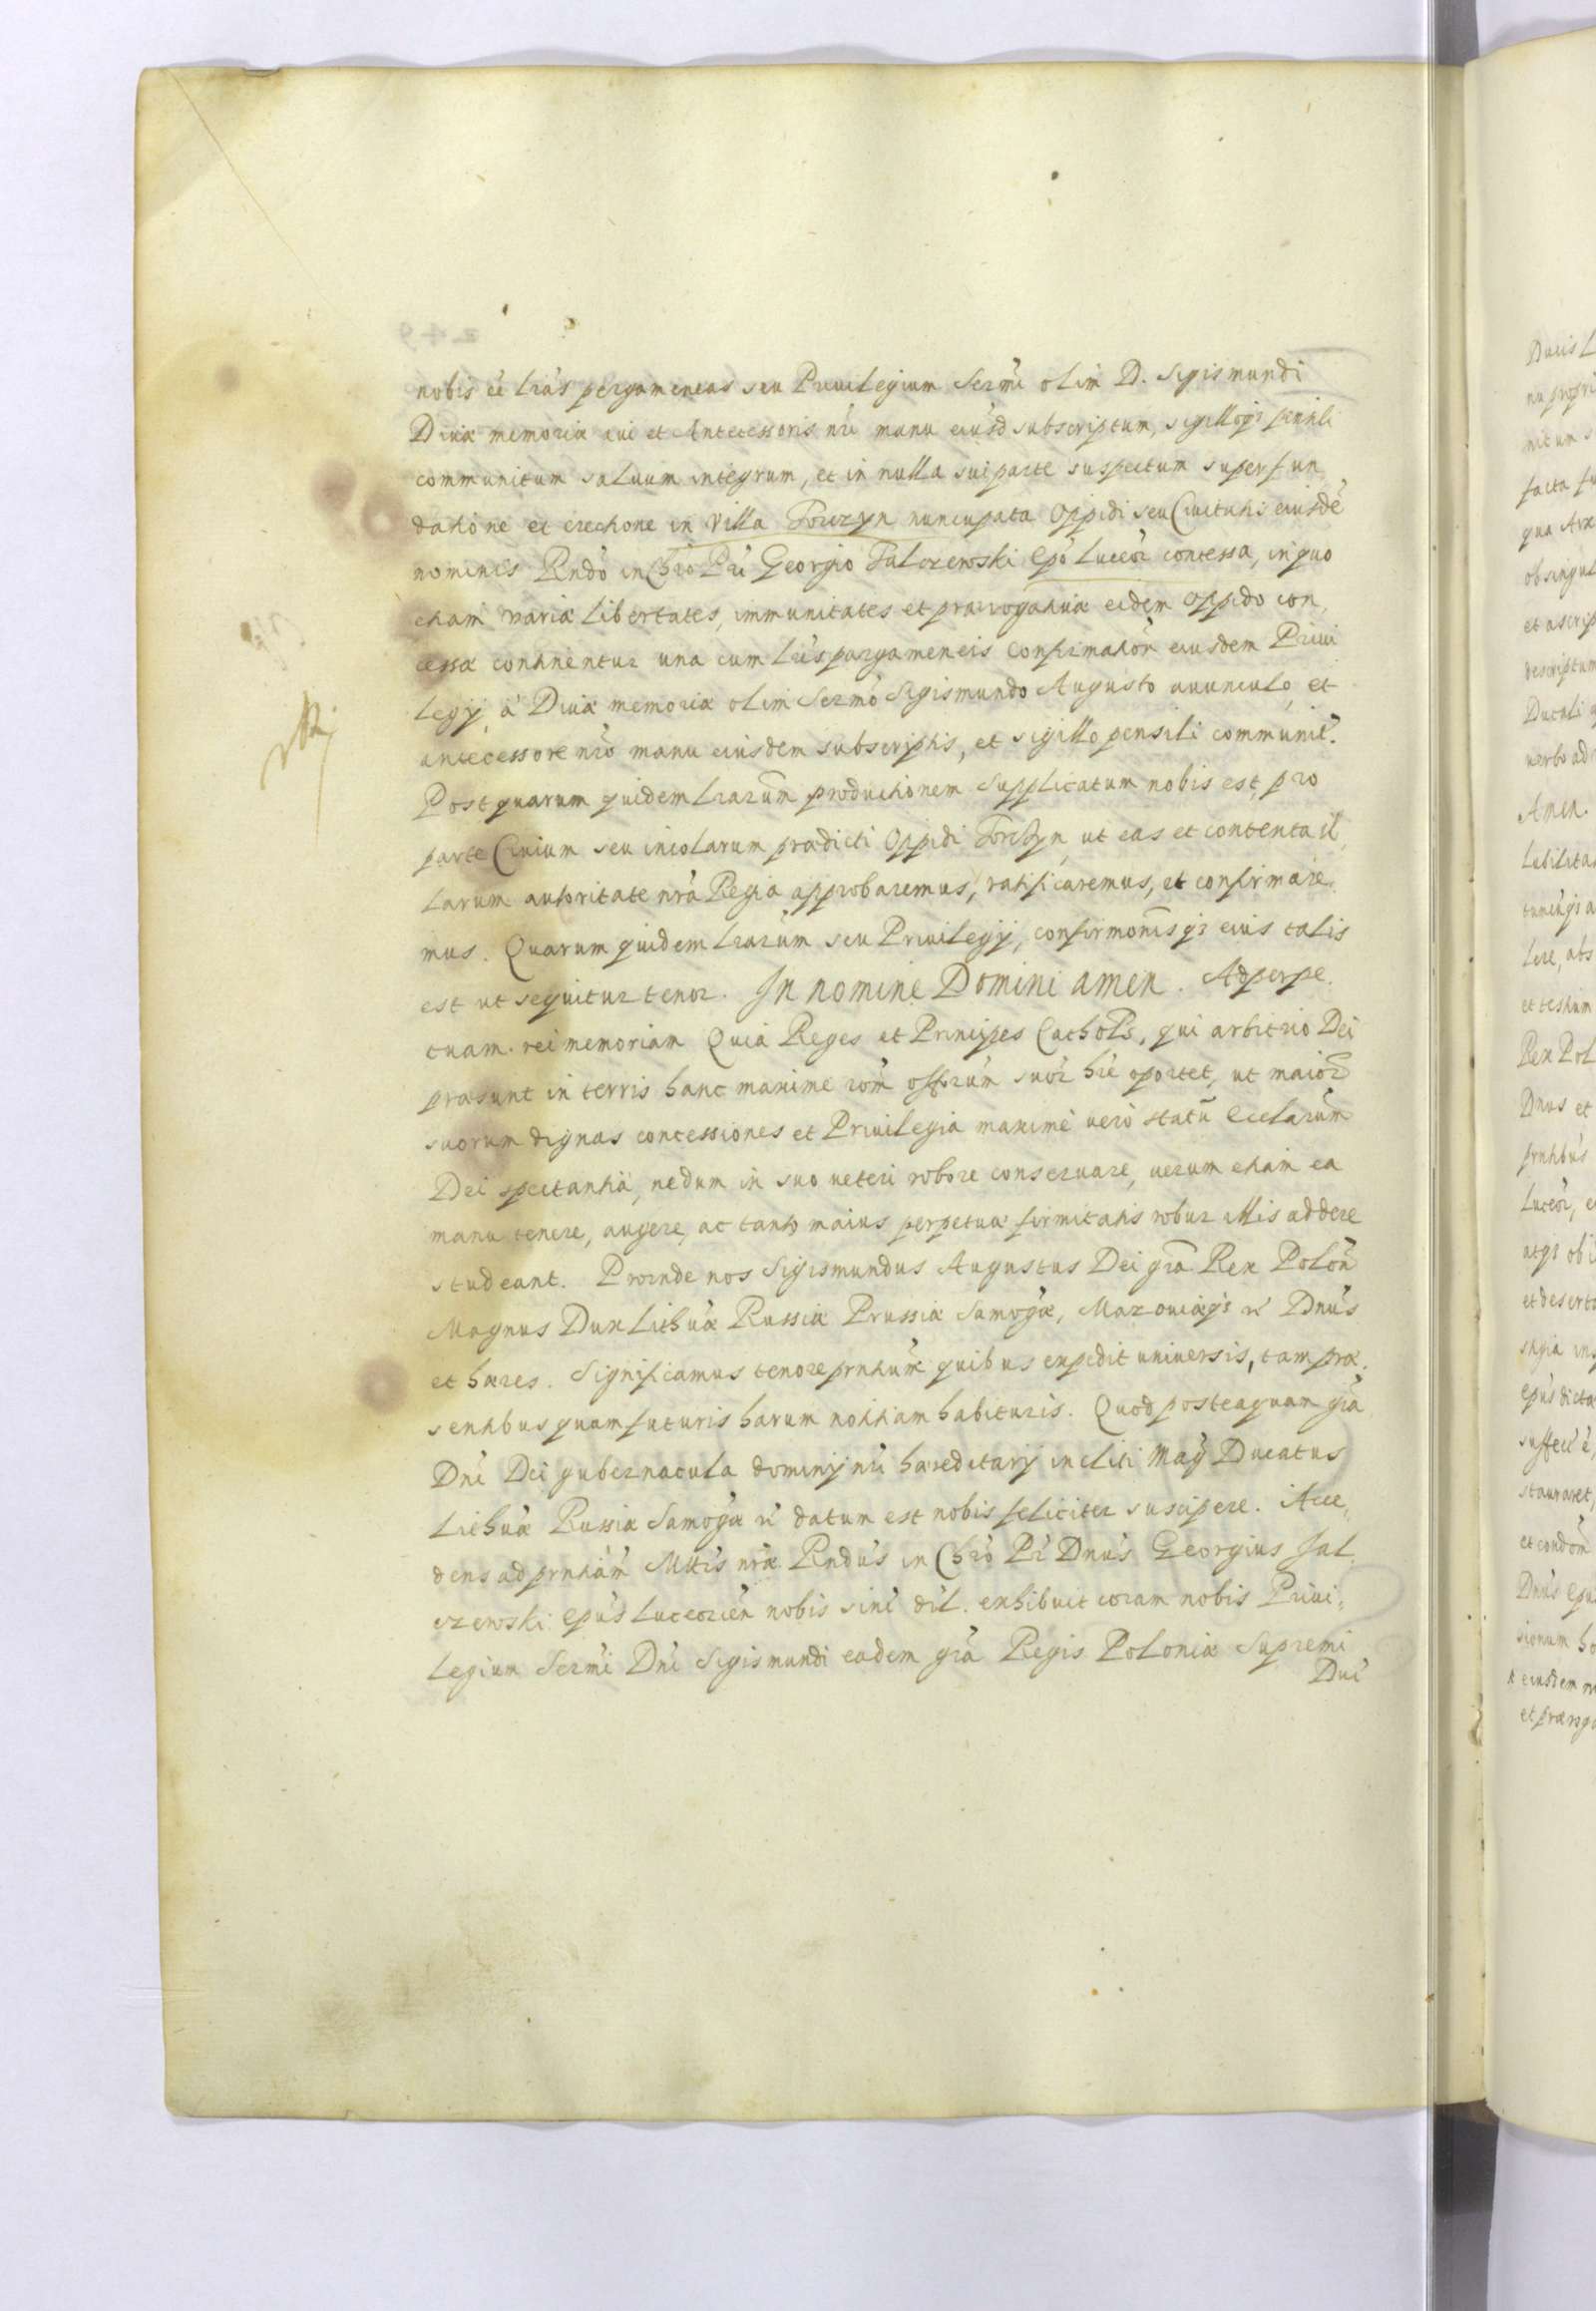 nobis eē lrās pergameneas seu Priuilegium Sermi olim D. Sigismundi
Diuæ memoriæ aui et Antecessoris nri manu eiusd subscriptum, sigilloqз pensili
communitum saluum integrum, et in nulla sui parte suspectum super fun,
datione et erectione in Villa Torczyn nuncupata Oppidi seu Ciuitatis eiusdē
nominis Rndo in Chro Pri Georgio Falczewski Epo Luceor concessa, in quo
etiam variæ libertates, immunitates et prærogatiuæ eidem oppido con,
cessæ continentur una cum lris pargameneis confirmation eiusdem Priui
legij, à Diuæ memoriæ olim Sermo Sigismundo Augusto auunculo, et
antecessore nro manu eiusdem subscriptis, et sigillo pensili communit.
Post quarum quidem lrarum productionem supplicatum nobis est, pro
parte Ciuium seu incolarum prædicti Oppidi Torczyn, ut eas et contenta il,
larum autoritate nrâ Regia approbaremus, ratificaremus, et confirmare.
mus. Quarum quidem lrarum seu Priuilegij, confirmonisqз eius talis
est ut sequitur tenor. In nomine Domini amen. Ad perpe.
tuam rei memoriam Quia Reges et Principes Cathol̃s, qui arbitrio Dei
præsunt in terris hanc maxime rom offorum suor hre oportet, ut maior
suorum dignas concessiones et Priuilegia maximè uerò statũ Ecclarum
Dei spectantia, nedum in suo ueteri robore conseruare, uerum etiam ea
manu tenere, augere, ac tanto maius perpetuæ firmitatis robur illis addere
studeant. Proinde nos Sigismundus Augustus Dei gra Rex Polon
Magnus Dux Lithuæ Russiæ Prussiæ Samogæ, Mazouiæqз rc Dnus
et hæres. Significamus tenore prntium quibus expedit uniuersis, tam præ.
sentibus quam futuris harum notitiam habituris. Quod posteaquam gra
Dni Dei gubernacula dominij nri hæreditarij incliti Mag Ducatus
Lithuæ Russiæ Samogæ rc datum est nobis feliciter suscipere. Acce,
dens ad prntiam Mttis nræ Rndus in Chro Pr Dnus Georgius Fal
czewski Epus Luceorien nobis sinc dil. exhibuit coram nobis Priui,
legium Sermi Dni Sigismundi eadem gra Regis Poloniæ Supremi
Duc